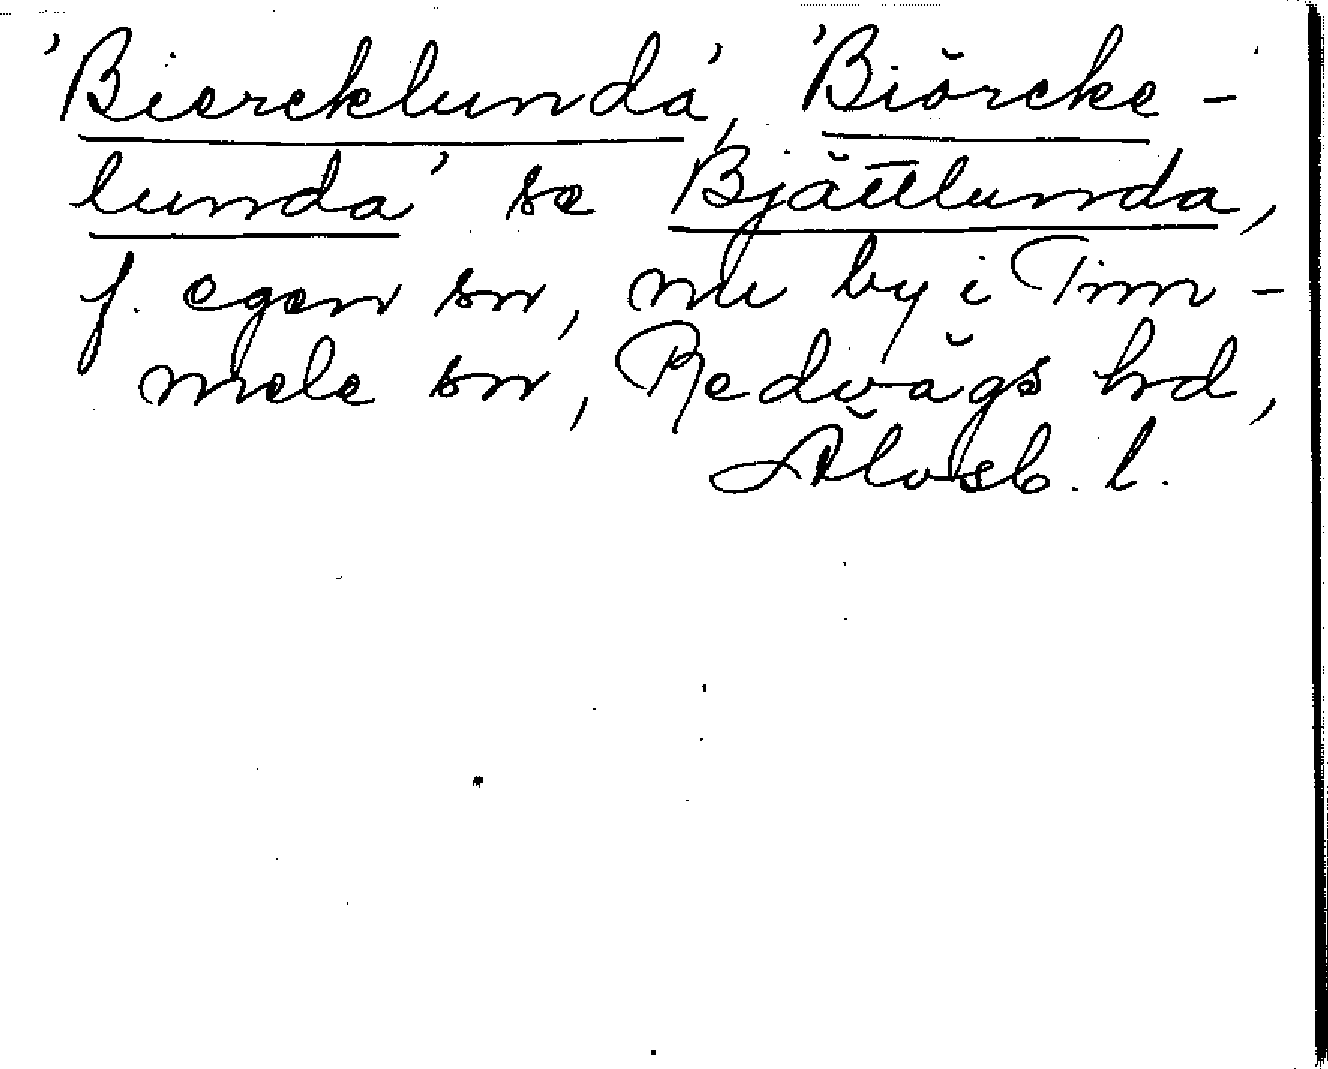 'Biercklunda', 'Biörcke-
lunda' se Bjättlunda,
f. egen sn, nu by i Tim-
mele sn, Redvägs hd,
Älvsb. l.